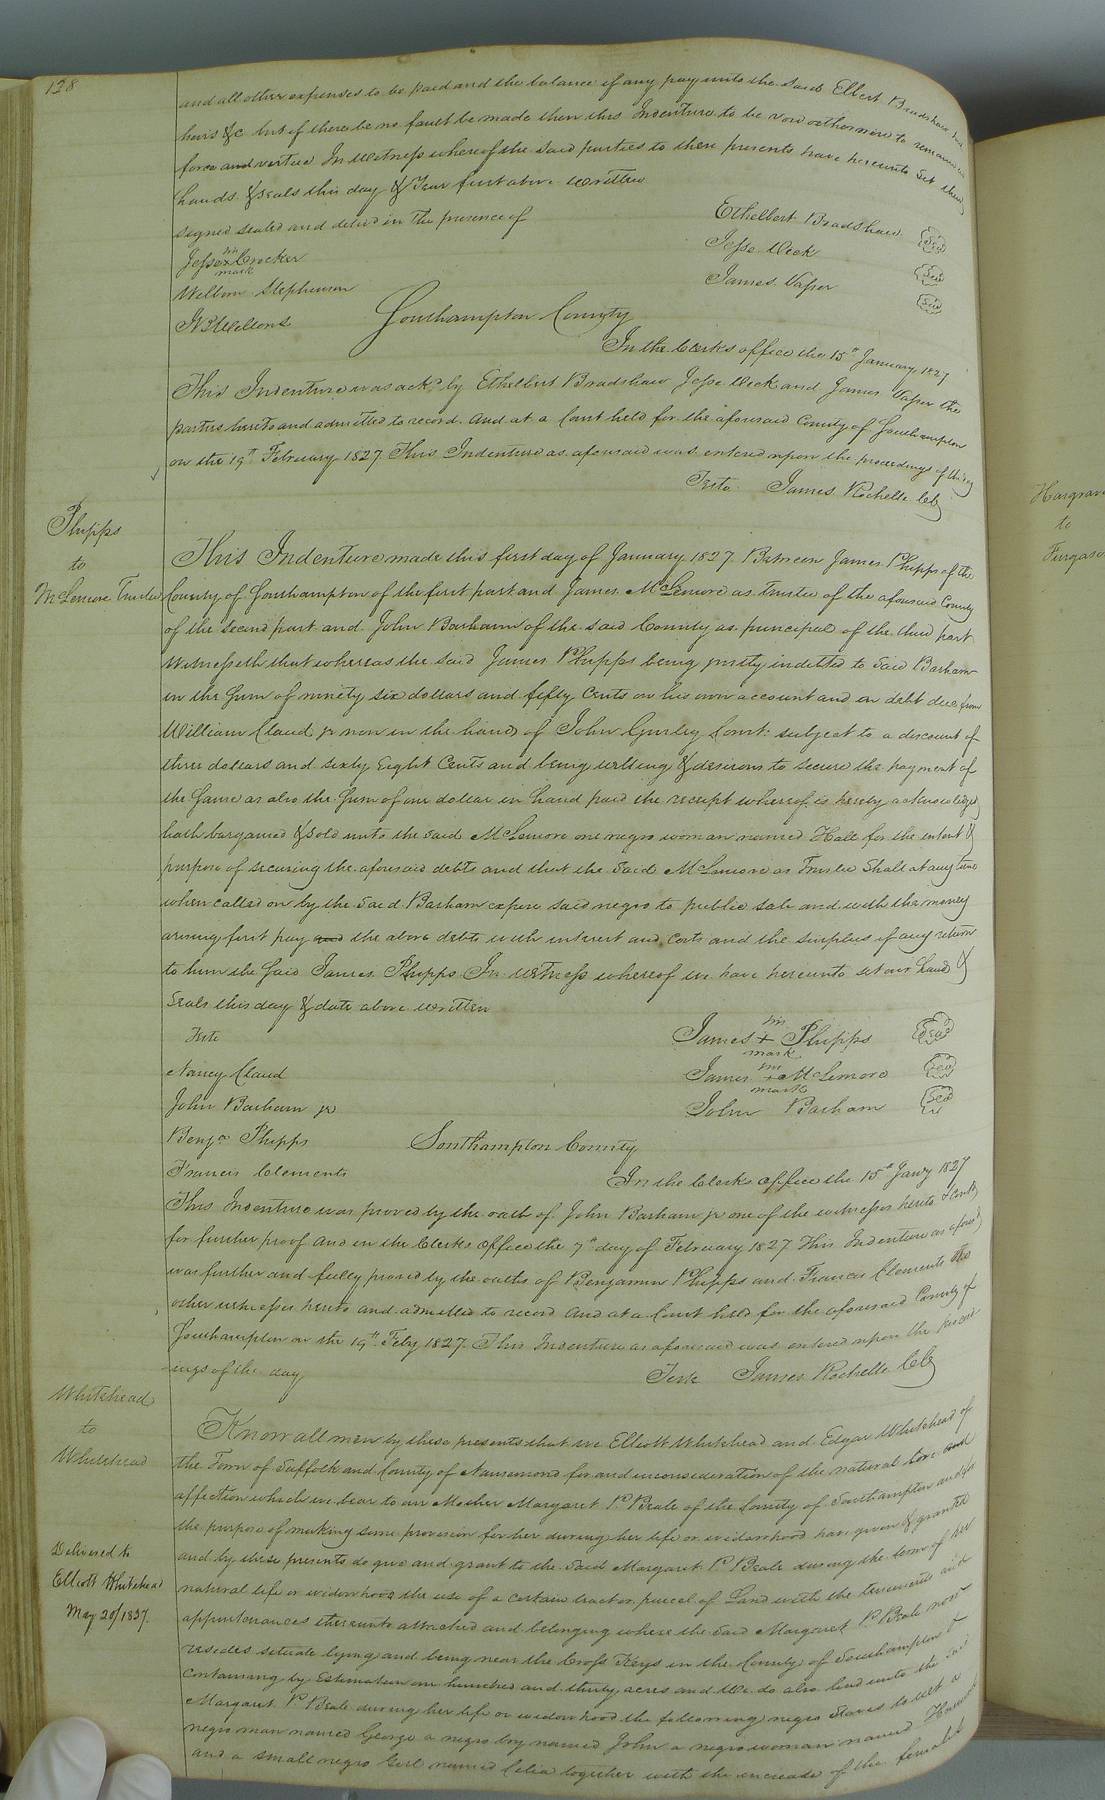 138
and all other expenses to be paid and the balance if any pay unto the said Elbert Bradshaw his
heirs &c but if there be no fault be made then this Indenture to be void otherwise to remain in
force and vertue In Witness whereof the said parties to these presents have hereunto set their
hands & seals this day & Year first above written
signed sealed and delivd in the presence of
Ethelbert Bradshaw Seal
Jesse his x mark Crocker
Jesse Week Seal
Welborn Stephenson
James Vasser Seal
Southampton County
In the Clerks office the 15th January 1827
This Indenture was ackd by Ethelbert Bradshaw Jesse Week and James Vasser the
parties hereto and admitted to record. And at a Court held for the aforesaid County of Southampton
on the 19th February 1827 This Indenture as aforesaid was entered upon the proceedings of the day
Teste James Rochelle Clk
Phipps
to
McLemore Trustee
This Indenture made this first day of January 1827. Between James Phipps of the
County of Southampton of the first part and James McLemore as Trustee of the aforesaid County
of the second part and John Barham of the said County as principal of the third part
Witnesseth that whereas the said James Phipps being justly indetted to said Barham
in the Sum of ninety six dollars and fifty Cents on his own account and on debt due from
William Claud jr now in the hands of John Gurley Const: subject to a discount of
three dollars and sixty Eight Cents and being willing & desirous to secure the payment of
the Same as also the Sum of one dollar in hand paid the receipt whereof is hereby acknowledged
hath bargained & sold unto the said McLemore one negro woman named Hall for the intent &
purpose of securing the aforesaid debts and that the said McLemore as Trustee Shall at any time
when called on by the said Barham expose said negro to public sale and with the money
arising first pay and the above debts with interest and Costs and the surplus if any return
to him the said James Phipps In witness whereof we have hereunto set our hand &
Seals this day & date above written
Teste
James his + mark Phipps Seal
Nancy Claud
James his + mark McLemore Seal
John Barham jr
John Barham Seal
Benjn Phipps
Southampton County
Francis Clements
In the Clerks office the 15th Jany 1827
This Indenture was proved by the oath of John Barham jr one of the witnesses hereto & Contd
for further proof And in the Clerks office the 7th day of February 1827 This Indenture as aforesd
was further and fully proved by the oaths of Benjamin Phipps and Francis Clements two
other witnesses hereto and admitted to record And at a Court held for the aforesaid County of
Southampton on the 19th Feby 1827. This Indenture as aforesaid was entered upon the proceed
ings of the day
Teste James Rochelle Clk
Whitehead
to
Whitehead
Know all men by these presents that we Elliott Whitehead and Edgar Whitehead of
the Town of Suffolk and County of Nansemond for and in consideration of the natural love and
affection which we bear to our Mother Margaret P. Beale of the County of Southampton and for
the purpose of making some provision for her during her life or widowhood have given & granted
Delivered to
Elliott Whitehead
May 20/1837.
and by these presents do give and grant to the said Margaret P. Beale during the term of her
natural life or widowhood the use of a certain tract or parcel of Land with the tenements and
appurtenances thereunto attached and belonging where the said Margaret P. Beale now
resides situate lying and being near the Cross Keys in the County of Southampton &
containing by Estimation one hundred and thirty acres and We do also lend unto the said
Margaret P. Beale during her life or widowhood the following negro Slaves to wit a
negro man named George a negro boy named John a negro woman named
and a small negro Girl named Celia together with the increase of the females
Hargrave
to
Furgason